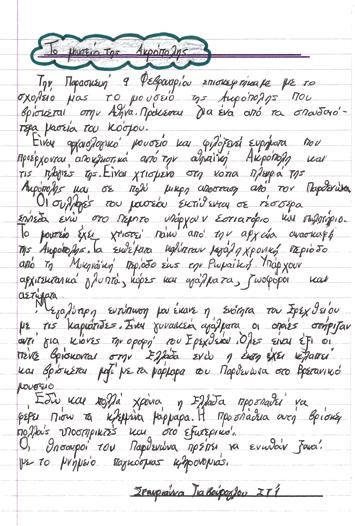 Το μουσείο της Ακρόπολης
Την Παρασκευή 9 Φεβρουαρίου επισκεφτήκαμε με το
σχολείο μας το μουσείο της Ακρόπολης που
βρίσκεται στην Αθήνα. Πρόκειται για ένα από τα σπουδαιό-
τερα μουσεία του κόσμου.
Είναι αρχαιολογικό μουσείο και φιλοξενεί ευρήματα που
προέρχονται αποκλειστικά από την αθηναϊκή Ακρόπολη και
τις πλαγιές της. Είναι χτισμένο στη νότια πλευρά της
Ακρόπολης και σε πολύ μικρή απόσταση από τον Παρθενώνα.
Οι συλλογές του μουσείου εκτίθενται σε τέσσερα
επίπεδα ενώ στο πέμπτο υπάρχουν εστιατόριο και πωλητήριο.
Το μουσείο έχει χτιστεί πάνω από την αρχαία ανασκαφή
της Ακρόπολης. Τα εκθέματα καλύπτουν μεγάλη χρονική περίοδο
από τη Μυκηναϊκή περίοδο έως την Ρωμαϊκή. Υπάρχουν
αρχιτεκτονικά γλυπτά, κόρες και αγάλματα, ζωοφόροι και
αετώματα.
Μεγαλύτερη εντύπωση μου έκανε η ενότητα του Ερεχθείου
με τις καρυάτιδες. Είναι γυναικεία αγάλματα οι οποίες στήριζαν
αντί για κίονες την οροφή του Ερεχθείου. Όλες είναι έξι οι
πέντε βρίσκονται στην Ελλάδα ενώ η έκτη έχει κλαπεί
και βρίσκεται μαζί με τα μάρμαρα του Παρθενώνα στο Βρετανικό
μουσείο
Εδώ και πολλά χρόνια η Ελλάδα προσπαθεί να
φέρει πίσω τα κλεμμένα μάρμαρα. Η προσπάθεια αυτή βρίσκει
πολλούς υποστηρικτές και στο εξωτερικό.
Οι θησαυροί του Παρθενώνα πρέπει να ενωθούν ξανά
με το μνημείο παγκόσμιας κληρονομιάς.
ΣΤ1